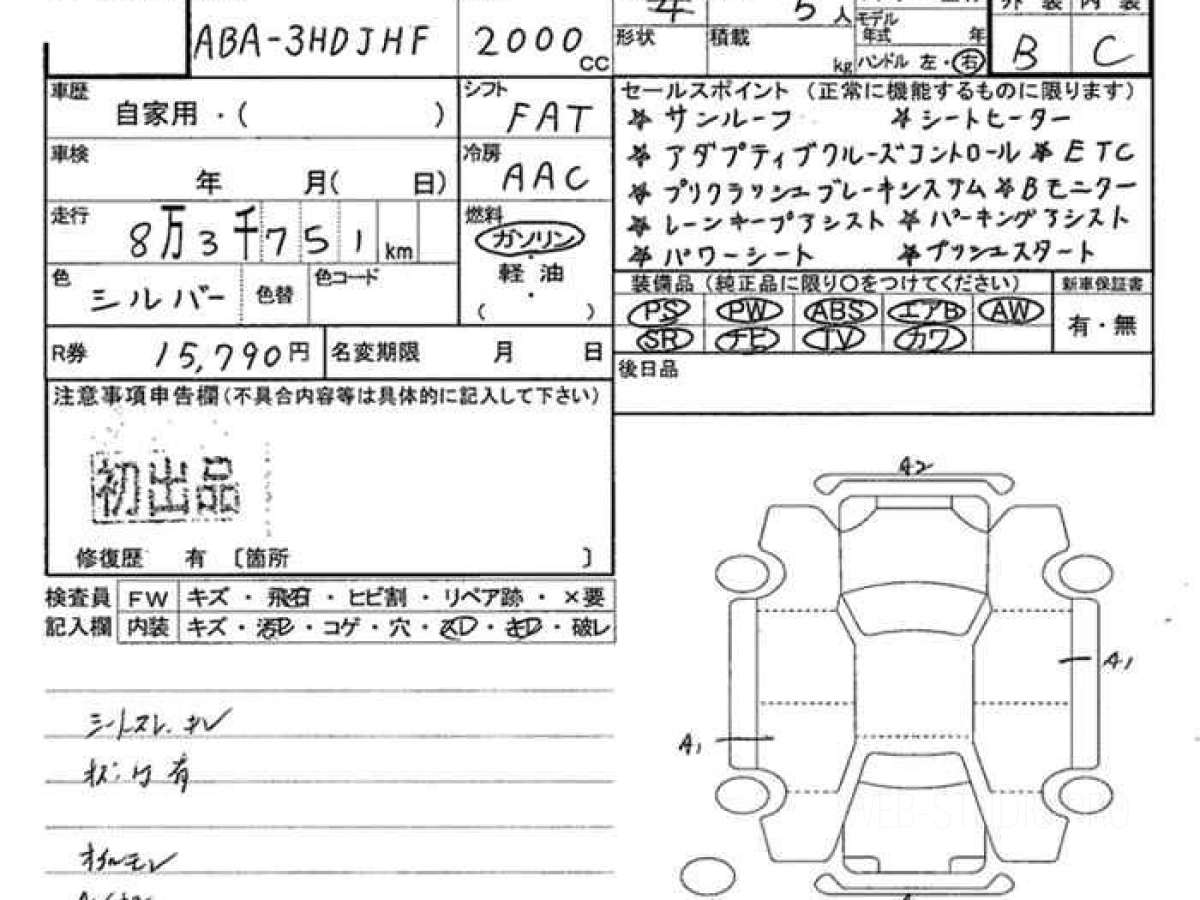 5人
ABA-3HDJHF 2000cc 形状 積載 kg モデル年式 年 ハンドル 左・右 B C
車歴 自家用・( ) シフト FAT セールスポイント(正常に機能するものに限ります)
☆サンルーフ ☆シートヒーター
車検 年 月( 日) 冷房 AAC ☆アダプティブクルーズコントロール ☆ETC
☆プリクラッシュブレーキシステム ☆Bモニター
走行 8万3千751km 燃料 ガソリン ☆レーンキープアシスト ☆パーキングアシスト
軽油 ☆パワーシート ☆プッシュスタート
色 シルバー 色替 色コード ( ) 装備品(純正品に限り○をつけてください) 新車保証書
PS PW ABS エアB AW 有・無
R券 15,790円 名変期限 月 日 SR ナビ TV カワ
後日品
注意事項申告欄(不具合内容等は具体的に記入して下さい)
初出品
修復歴 有 〔箇所 〕
検査員 FW キズ・飛石・ヒビ割・リペア跡・×要
記入欄 内装 キズ・汚レ・コゲ・穴・スレ・キレ・破レ
シートスレ.キレ
A2
A1
A1
WEB-STUDIO.PRO